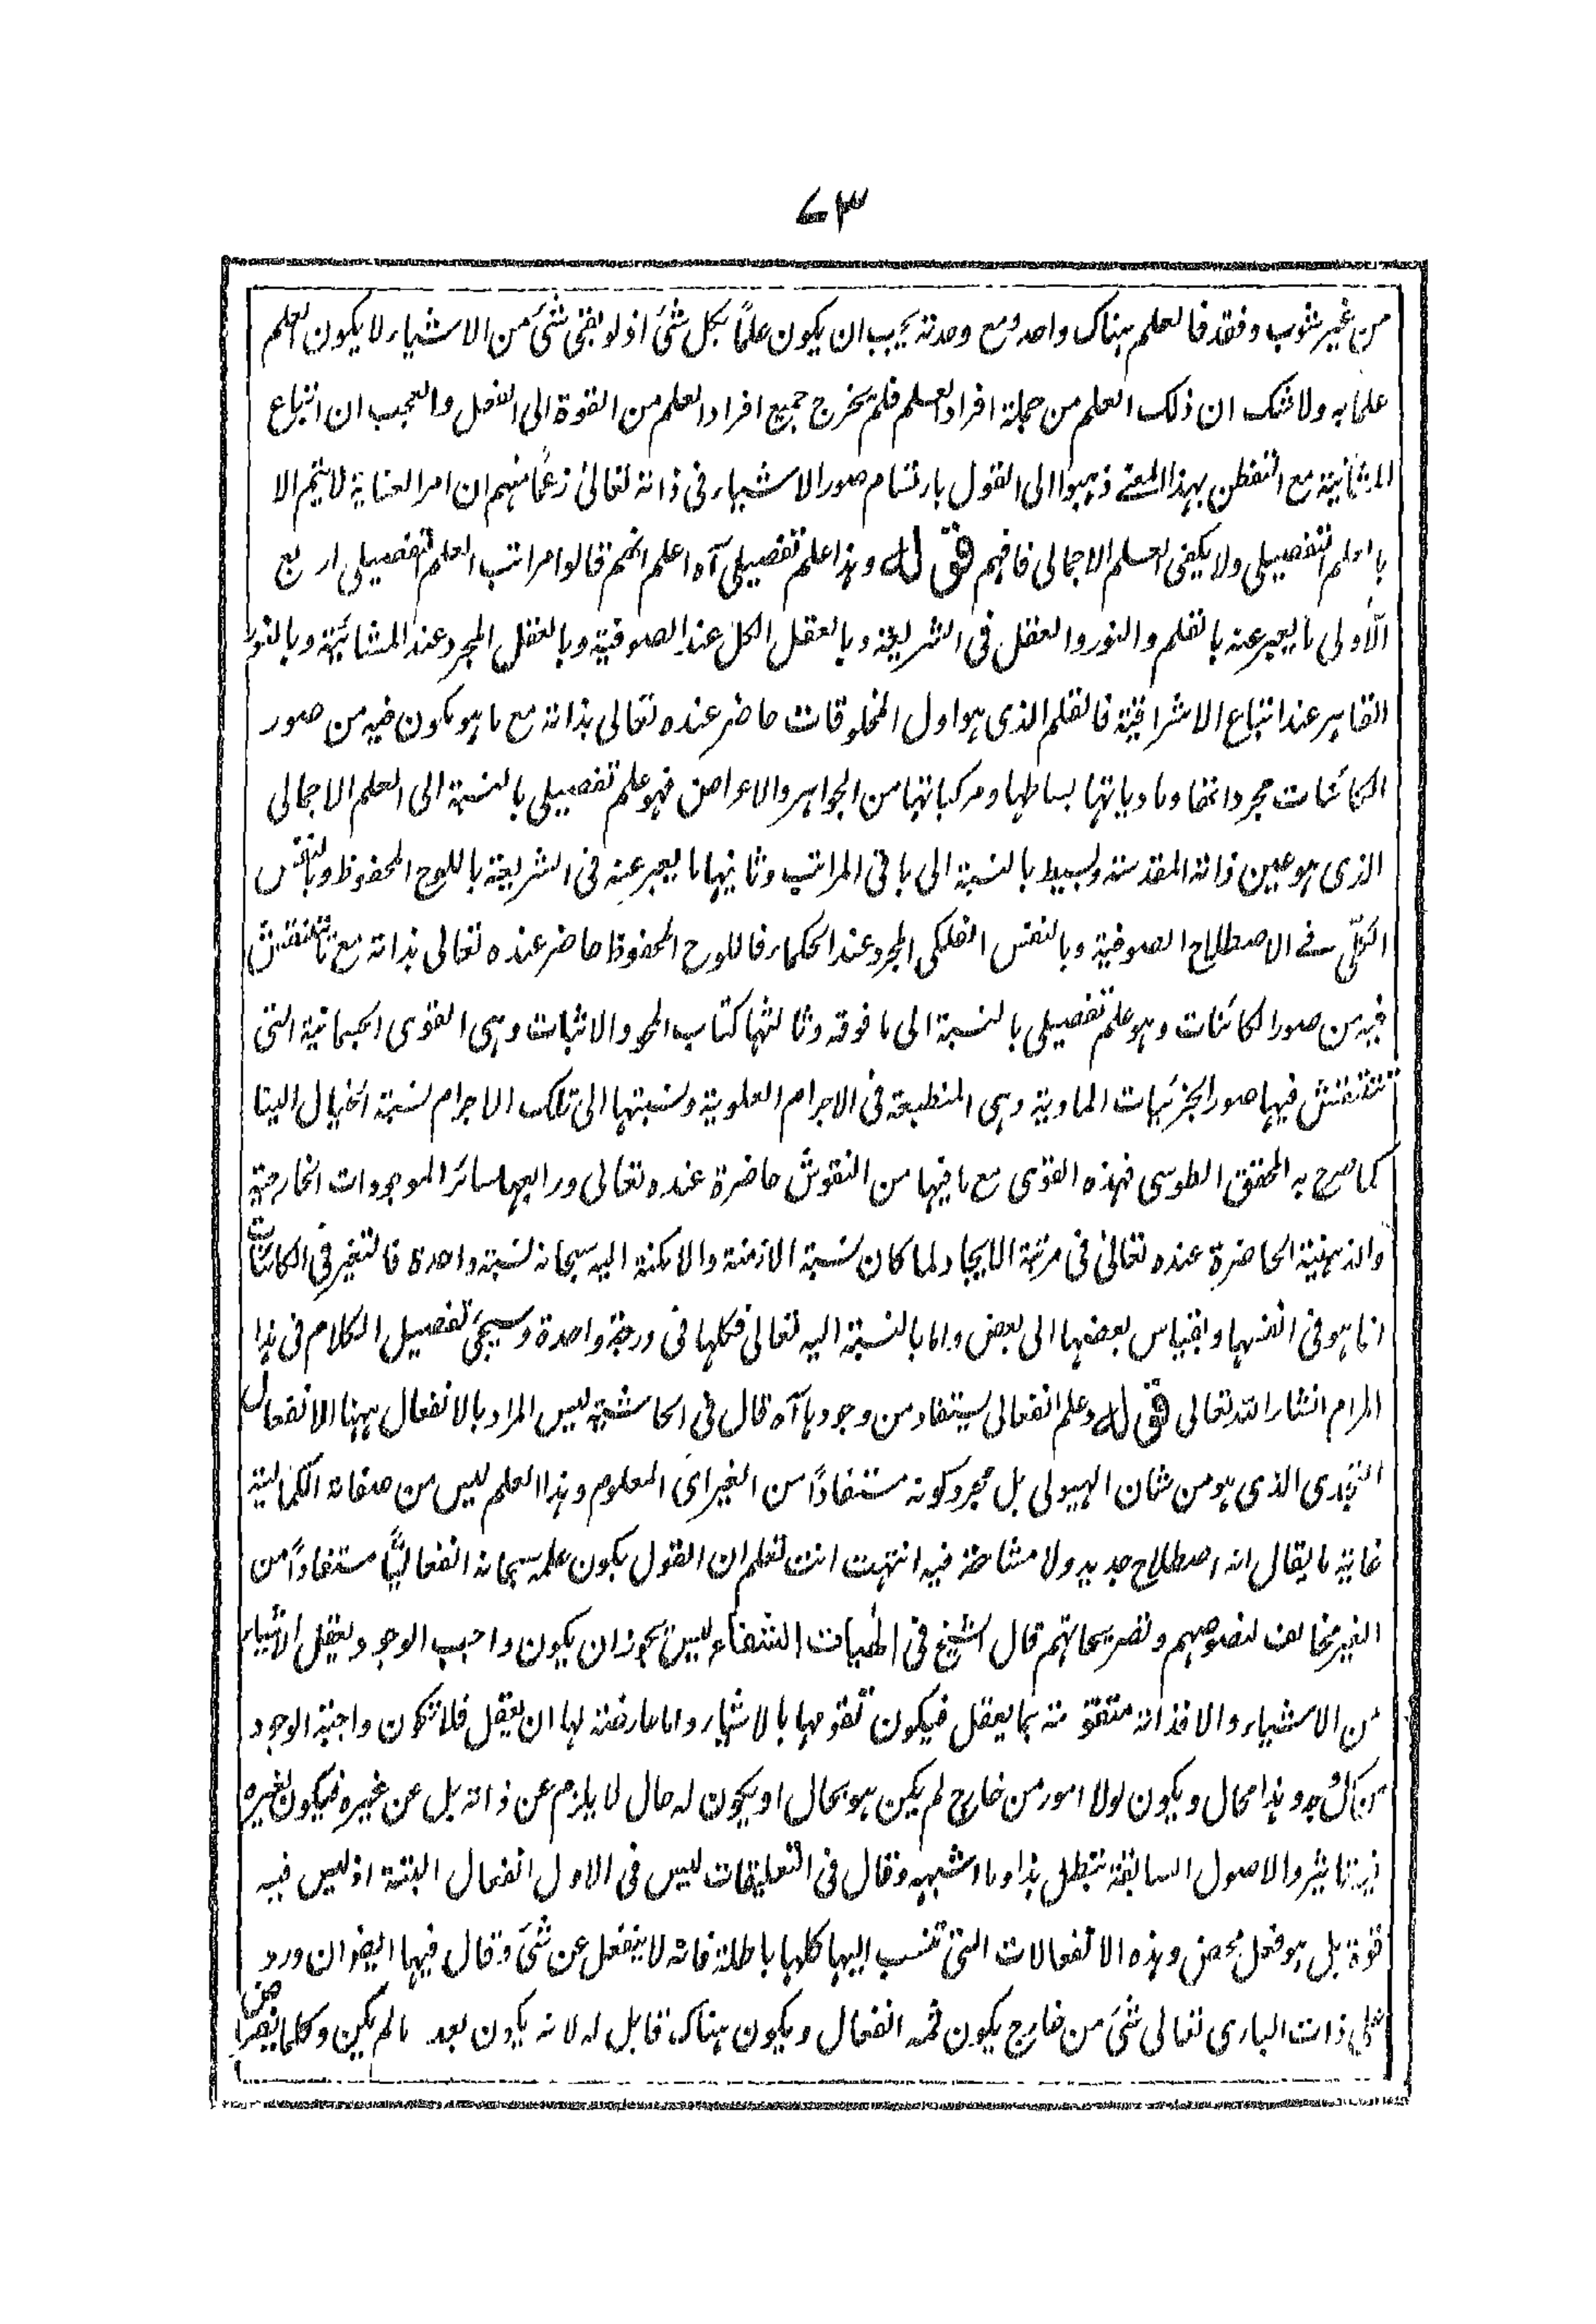 ٦٣
من غير شوب وفقد فالعلم هناك واحد ومع وحدته يجب ان يكون علمًا بكل شئ اذ لو بقى شئ من الاشياء لا يكون العلم
علما به ولا شك ان ذلك العلم من جملة افراد العلم فلم يخرج جميع افراد العلم من القوة الى الفعل والعجب ان اتباع
المشائية مع التفطن بهذا المعنى ذهبوا الى القول بارتسام صور الاشياء فى ذاته تعالى زعمًا منهم ان امر العناية لا يتم الا
بالعلم التفصيلى ولا يكفى العلم الاجمالى فافهم قوله وهذا علم تفصيلى آه اعلم انهم قالوا مراتب العلم التفصيلى اربع
الاولى ما يعبر عنه بالقلم والنور والعقل فى الشريعة وبالعقل الكل عند الصوفية وبالعقل المجرد عند المشائية وبالنور
القاهر عند اتباع الاشراقية فالقلم الذى هو اول المخلوقات حاضر عنده تعالى بذاته مع ما هو مكون فيه من صور
الكائنات مجرداتها ومادياتها بسائطها ومركباتها من الجواهر والاعراض فهو علم تفصيلى بالنسبة الى العلم الاجمالى
الذى هو عين ذاته المقدسة وبسيط بالنسبة الى باقى المراتب وثانيها ما يعبر عنه فى الشريعة باللوح المحفوظ وبالنفس
الكلّى فى الاصطلاح الصوفية وبالنفس الفلكى المجرد عند الحكماء فاللوح المحفوظ حاضر عنده تعالى بذاته مع ما ينتقش
فيه من صور الكائنات وهو علم تفصيلى بالنسبة الى ما فوقه وثالثها كتاب المحو والاثبات وهى القوى الجسمانية التى
تنتقش فيها صور الجزئيات المادية وهى المنطبعة فى الاجرام العلوية ونسبتها الى تلك الاجرام نسبة الخيال الينا
كما صرح به المحقق الطوسى فهذه القوى مع ما فيها من النقوش حاضرة عنده تعالى ورابعها سائر الموجودات الخارجية
والذهنية الحاضرة عنده تعالى فى مرتبة الايجاد ولما كان نسبة الازمنة والامكنة اليه سبحانه نسبة واحدة فالتغير فى الكائنات
انما هو فى انفسها وبقياس بعضها الى بعض واما بالنسبة اليه تعالى فكلها فى درجة واحدة وسيجئ تفصيل الكلام فى هذا
المرام انشاء الله تعالى قوله وعلم انفعالى يستفاد من وجودها آه قال فى الحاشية ليس المراد بالانفعال ههنا الانفعال
التجددى الذى هو من شان الهيولى بل مجرد كونه مستفادًا من الغير اى المعلوم وهذا العلم ليس من صفاته الكمالية
غاية ما يقال انه اصطلاح جديد ولا مشاحة فيه انتهت انت تعلم ان القول بكون علمه سبحانه انفعاليًّا مستفادًا من
الغير مخالف لنصوصهم وتصريحاتهم قال الشيخ فى الهيات الشفاء ليس يجوز ان يكون واجب الوجود يعقل الاشياء
من الاشياء والا فذاته متقومة بما يعقل فيكون تقومها بالاشياء واما عارضة لها ان يعقل فلا تكون واجبة الوجود
من كل جهة وهذا محال ويكون لولا امور من خارج لم يكن هو بحال او يكون له حال لا يلزم عن ذاته بل عن غيره فيكون لغيره
فيه تاثير والاصول السابقة تبطل هذا وما اشبهه وقال فى التعليقات ليس فى الاول انفعال البتة اذ ليس فيه
قوة بل هو فعل محض وهذه الانفعالات التى تنسب اليها كلها باطلة فانه لا ينفعل عن شئ وقال فيها ايضا ان ورد
على ذات البارى تعالى شئ من خارج يكون ثمه انفعال ويكون هناك قابل له لانه يكون بعد ما لم يكن وكلما يفرض